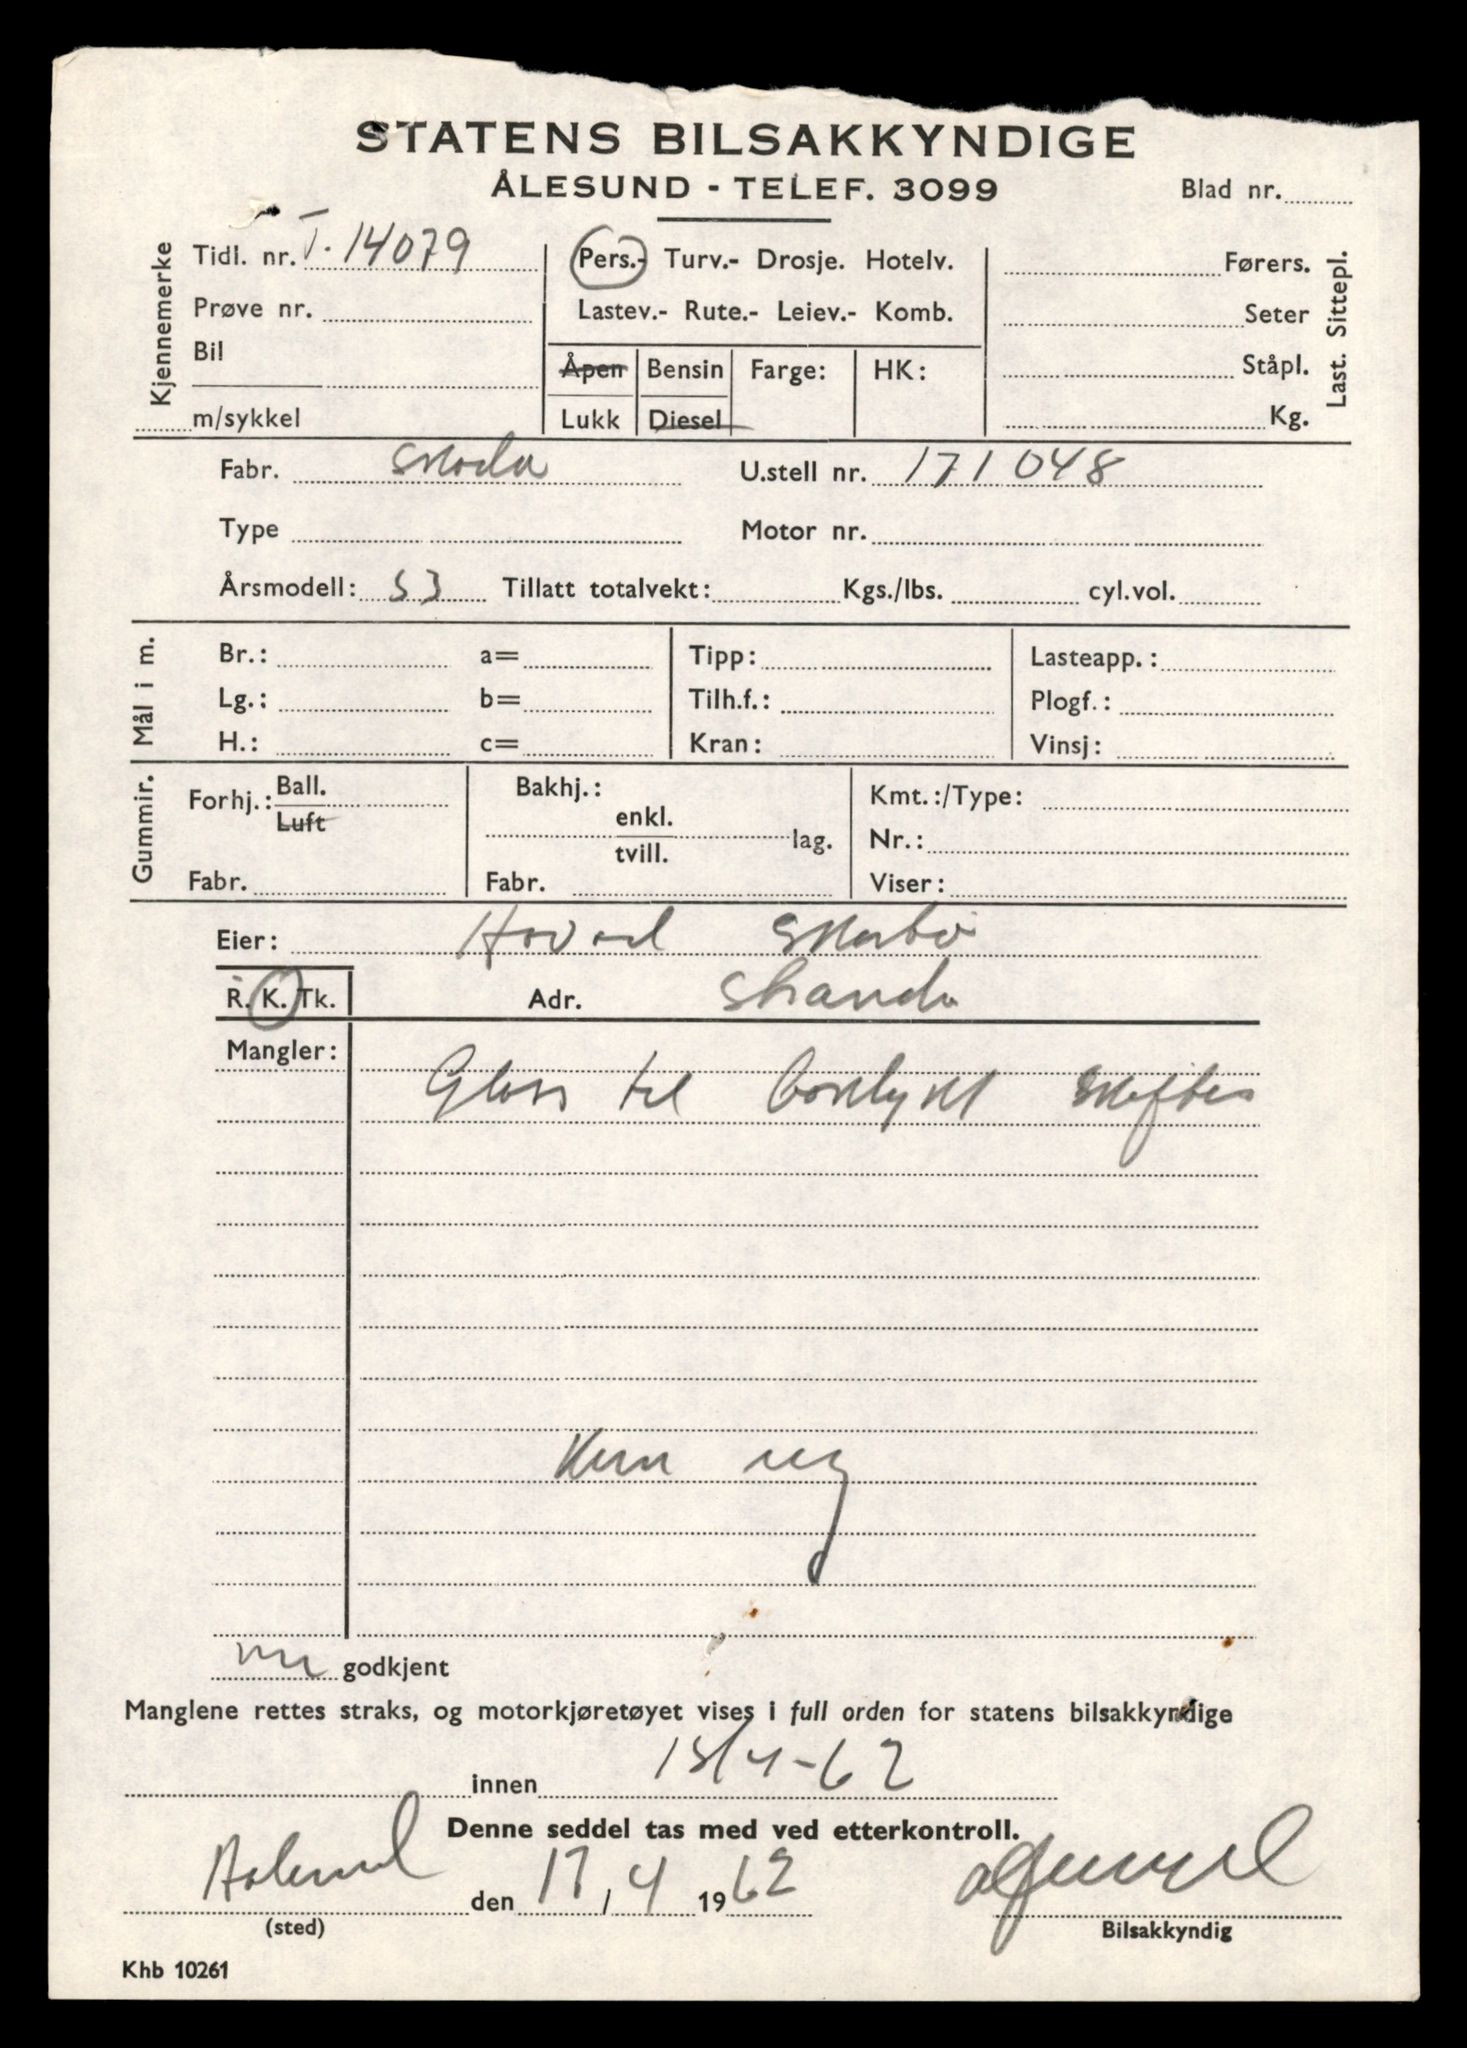 STATENS BILSAKKYNDIGE
ÅLESUND - TELEF. 3099
Blad nr.
Kjennemerke
Tidl. nr. T-14079
Prøve nr.
Bil
m/sykkel
Pers.- Turv.- Drosje. Hotelv.
Lastev.- Rute.- Leiev.- Komb.
Åpen Bensin Farge: HK:
Lukk Diesel
Førers.
Seter
Ståpl.
Kg.
Last. Sittepl.
Fabr. Skoda U.stell nr. 171048
Type Motor nr.
Årsmodell: 53 Tillatt totalvekt: Kgs./lbs. cyl.vol.
Mål i m.
Br.: a= Tipp: Lasteapp.:
Lg.: b= Tilh.f.: Plogf.:
H.: c= Kran: Vinsj:
Gummir.
Forhj.: Ball.
Luft
Fabr.
Bakhj.:
enkl.
tvill. lag.
Fabr.
Kmt.:/Type:
Nr.:
Viser:
Eier: Skarbø
R. K. Tk. Adr. Stranda
Mangler:
Glass til baklykt skiftes
godkjent
Manglene rettes straks, og motorkjøretøyet vises i full orden for statens bilsakkyndige
innen /4-62
Denne seddel tas med ved etterkontroll.
Aalesund den 17/4 1962
(sted) Bilsakkyndig
Khb 10261